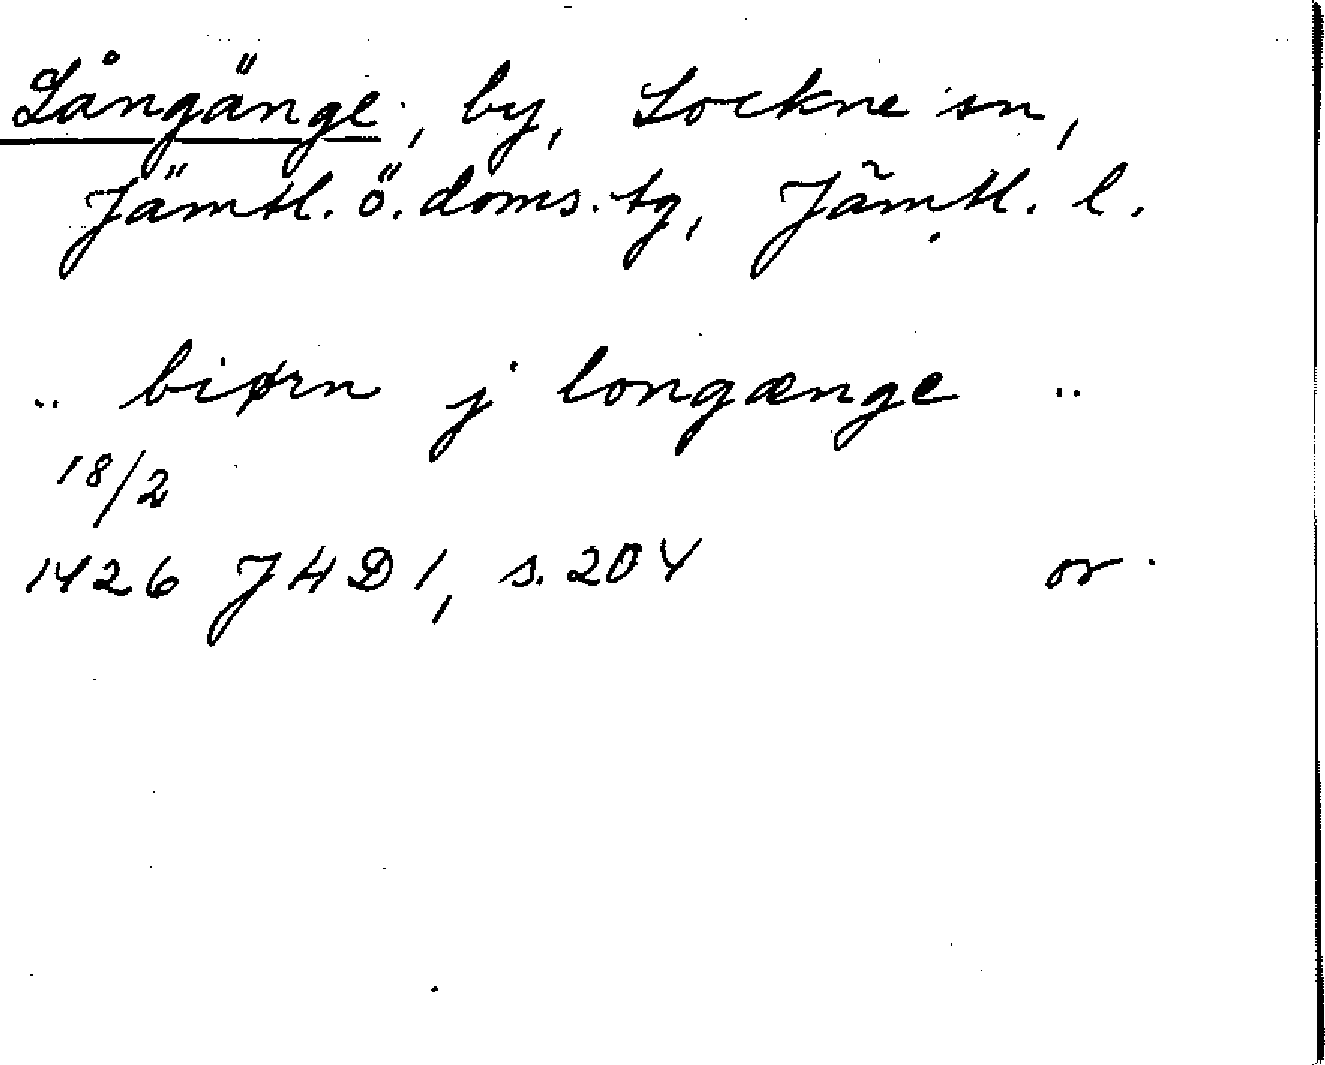 Långänge, by, Lockne sn,
Jämtl. ö. doms. tg, Jämtl. l.
.. biørn j longænge ..
18/2
1426 JHD 1, s. 204 or.